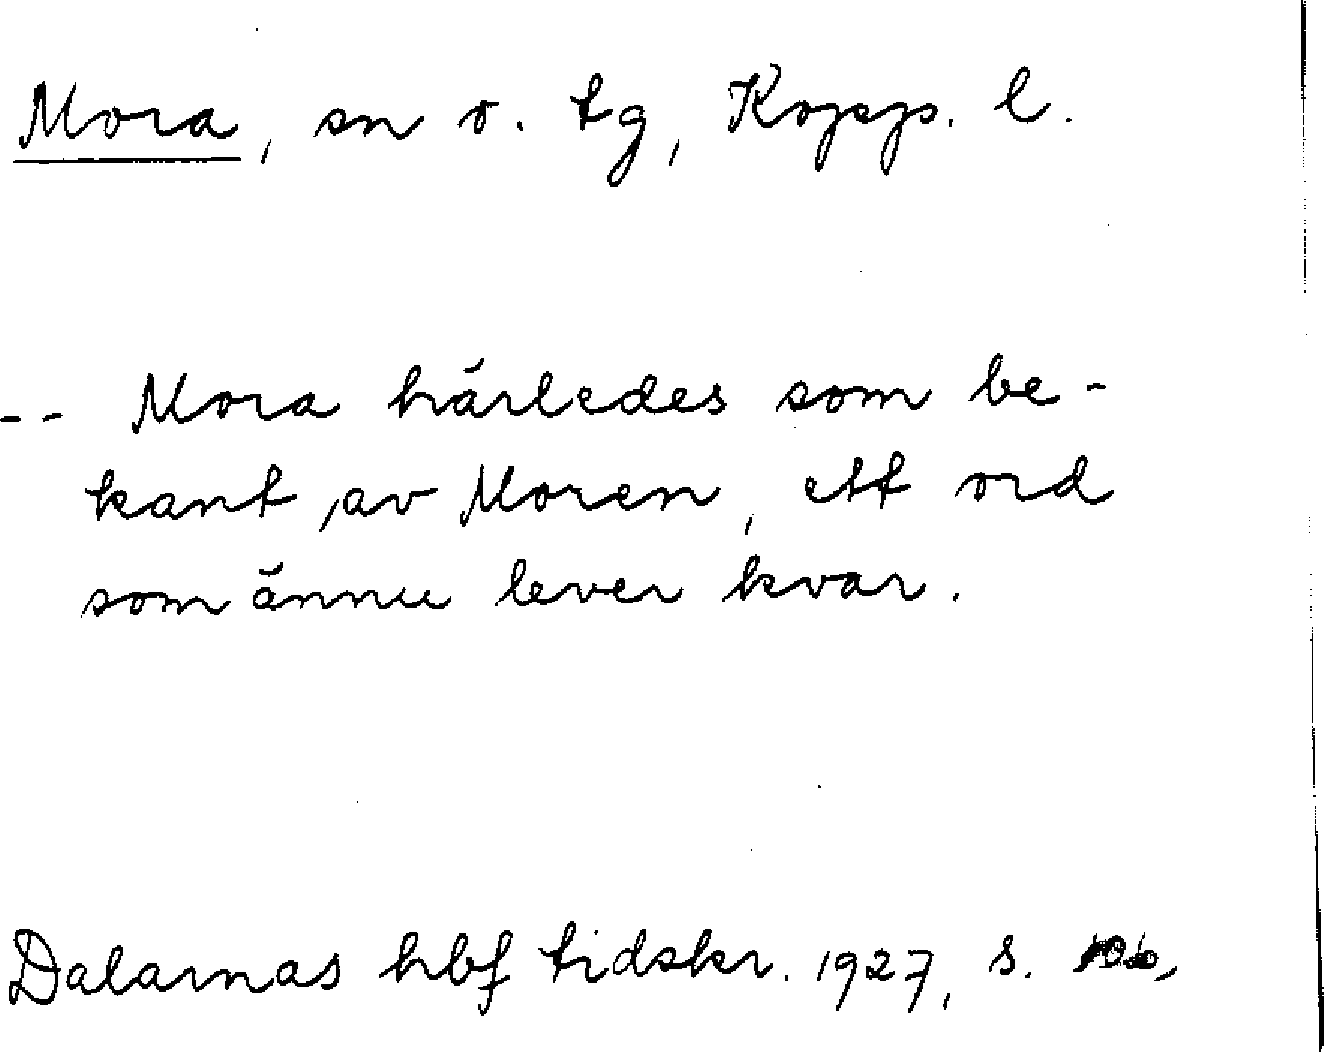 Mora, sn o. tg, Kopp. l.
-- Mora härledes som be-
kant, av Moren, ett ord
som ännu lever kvar.
Dalarnas hbf tidskr. 1927, s.